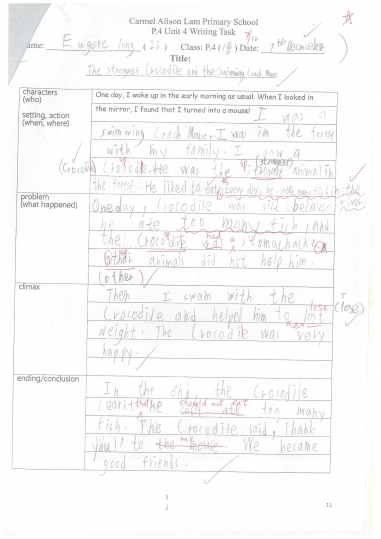 Carmel Alison Lam Primary School
P.4 Unit 4 Writing Task
ame: Eugene (23) Class: P.4 ( ) Date: 7th December
7/12
Title:
The strongest Crocodile and the Swimming Coach Mouse
characters
(who)
setting, action
(when, where)
One day, I woke up in the early morning as usual. When I looked in
the mirror, I found that I turned into a mouse! I was a
swimming Coach Mouse. I was in the forest
with my family. I saw a
(Crocodile) Crocodile. He was the (strongest) animal in
the forest. He liked to eat every day, he ate many fish in the
rivers
problem
(what happened)
One day, Crocodile was sid because
he ate too many fish and
the Crocodile had a stomachache.
Other animals did not help him.
(other)
climax
Then I swam with the
Crocodile and helped him to lost lose (lose)
weight. The Crocodile was very
happy.
ending/conclusion
In the end, the Crocodile
learnt that he should not eat too many
fish. The Crocodile said, Thank
you!! to the mouse me. We became
good friends.
11